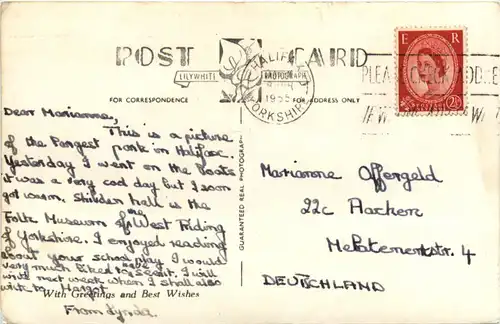 POST CARD
LILYWHITE
PHOTOGRAPH
FOR CORRESPONDENCE
FOR ADDRESS ONLY
HALIFAX
YORKSHIRE
E R
2½
Dear Marianne,
This is a picture
of the largest park in Halifax.
Yesterday I went on the boats
it was a very cod day but I soon
got warm. Shibden hall is the
Folk Museum of the West Riding
of Yorkshire. I enjoyed reading
about your school play I would
very much liked to have seen it. I will
write next week when I shall also
write to Margot
With Greetings and Best Wishes
From Lynda
GUARANTEED REAL PHOTOGRAPH
Marianne Offergeld
22c Aachen
Melatenerstr. 4
DEUTSCHLAND